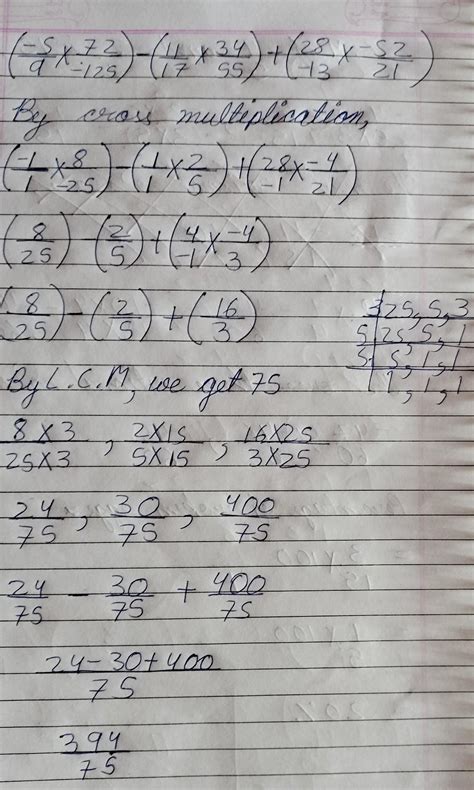 (-5/9 × 72/-125) - (11/17 × 34/55) + (28/-13 × -52/21)
By cross multiplication,
(-1/1 × 8/-25) - (1/1 × 2/5) + (28/-1 × -4/21)
(8/25) - (2/5) + (4/-1 × -4/3)
(8/25) - (2/5) + (16/3)
3 25, 5, 3
5 25, 5, 1
5 5, 1, 1
1, 1, 1
By L.C.M, we get 75
8×3/25×3 , 2×15/5×15 , 16×25/3×25
24/75 , 30/75 , 400/75
24/75 - 30/75 + 400/75
24-30+400/75
394/75